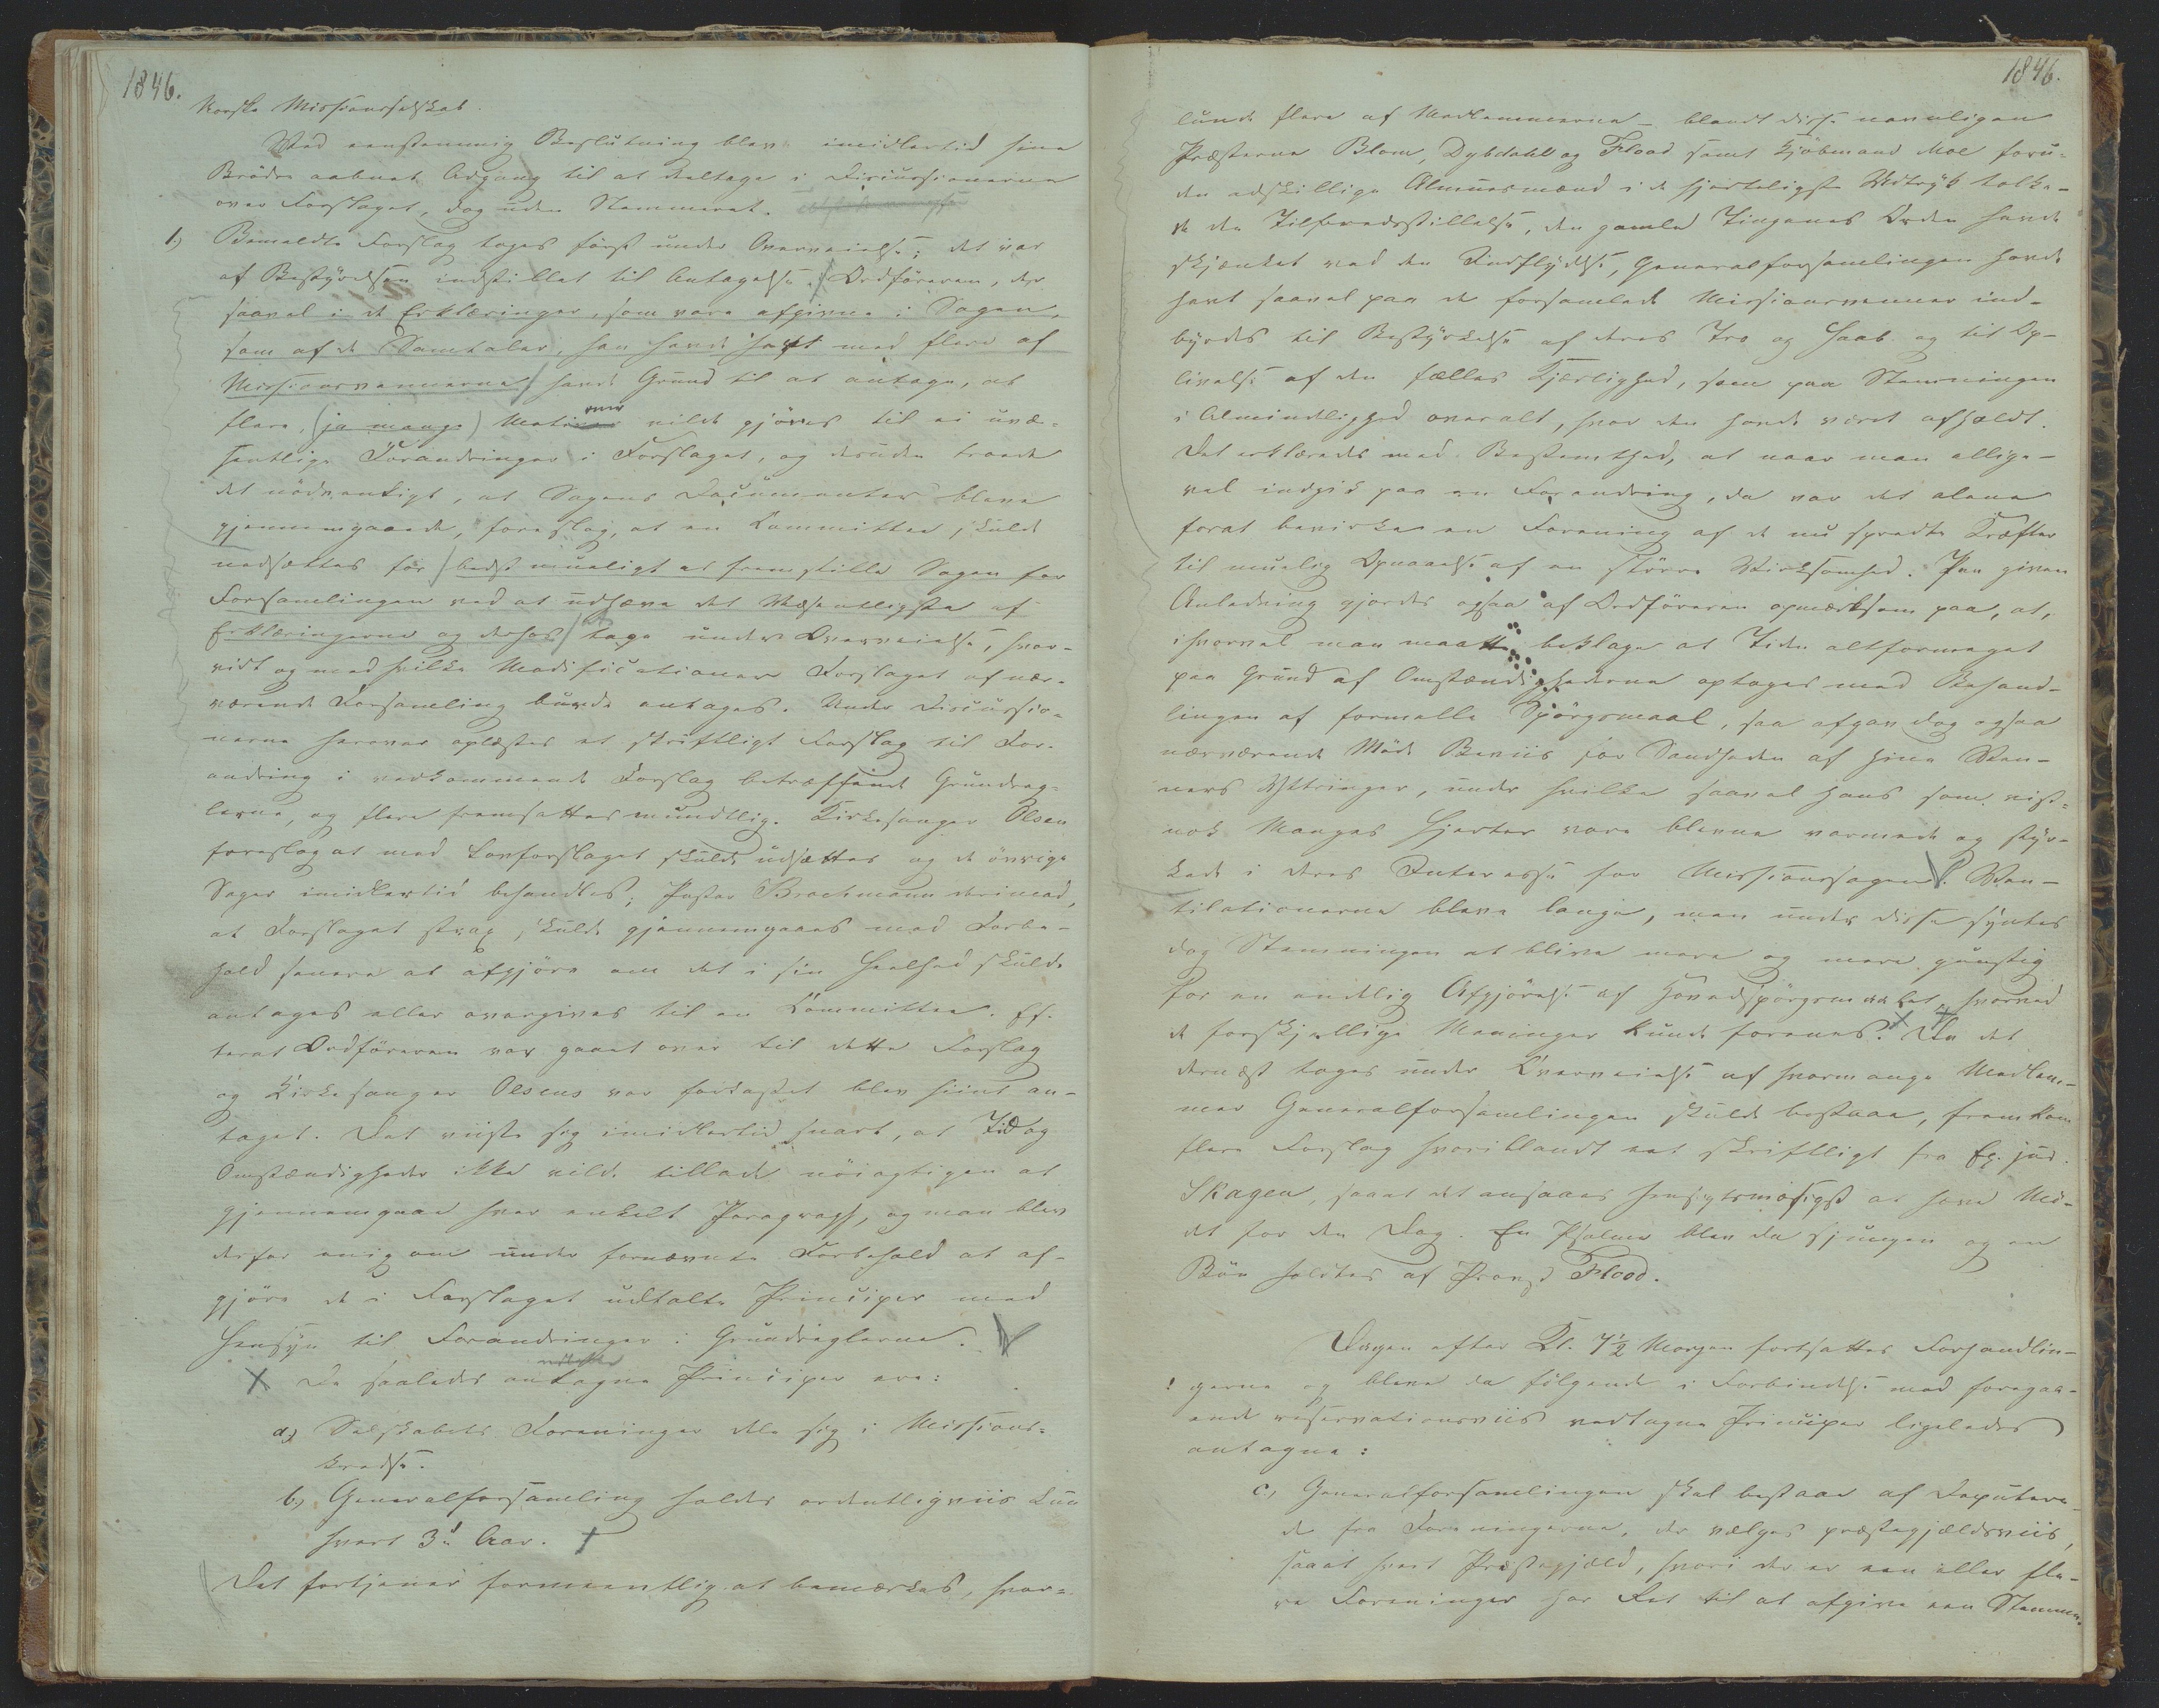 1846.
Norske Missionsselskab.
Ved eenstemmig Beslutning blev imidlertid hine
Brödre aabnet Adgang til at deltage i Discussionerne
over Forslaget, dog uden Stemmeret.
1.) Bemeldte Forslag toges först under Overveielse; det var
af Bestyrelsen indstillet til Antagelse. Ordföreren, der
saavel i de Erklæringer, som vare afgivne i Sagen,
som af de Samtaler, han havde havt med flere af
Missionsvennerne, havde Grund til at antage, at
flere, (ja mange) Motioner vilde gjöres til ei uvæ-
sentlige Forandringer i Forslaget, og desuden troede
det nödvendigt, at Sagens Documenter bleve
gjennemgaaede, foreslog, at en Committee skulde
nedsættes for bedst mueligt at fremstille Sagen for
Forsamlingen ved at udhæve det Væsentligste af
Erklæringerne og derhos tage under Overveielse, hvor-
vidt og med hvilke Modificationer Forslaget af nær-
værende Forsamling burde antages. Under Discussio-
nerne herover oplæstes et skriftligt Forslag til For-
andring i vedkommende Forslag betræffende Grundreg-
lerne, og flere fremsattes mundtlig. Kirkesanger Olsen
foreslog at med Lovforslaget skulde udsættes og de övrige
Sager imidlertid behandles; Pastor Brochmann derimod,
at Forslaget strax skulde gjennemgaaes med Forbe-
hold senere at afgjöre om det i sin Heelhed skulde
antages eller overgives til en Committee. Ef-
terat Ordföreren var gaaet over til dette Forslag
og Kirkesanger Olsens var forkastet blev hiint an-
taget. Det viiste sig imidlertid snart, at Tid og
Omstændigheder ikke vilde tillade nöiagtigen at
gjennemgaae hver enkelt Paragraph, og man blev
derfor enig om under fornævnte Forbehold at af-
gjöre de i Forslaget udtalte Principer med
Hensyn til Forandringer i Grundreglerne.
De saaledes antagne Principer ere:
a.) Selskabets Foreninger dele sig i Missions-
kredse.
b.) Generalforsamling holdes ordentligviis kun
hvert 3die Aar.
Det fortjener formeentlig at bemærkes, hvor-
1846.
lunde flere af Medlemmerne – blandt disse navnligen
Præsterne Blom, Dybdahl og Flood samt Kjöbmand Moe foru-
den adskillige Almuesmænd i de hjerteligste Udtryk tolke-
de den Tilfredsstillelse, den gamle Tingenes Orden havde
skjænket ved den Indflydelse, Generalforsamlingen havde
havt saavel paa de forsamlede Missionsvenner ind-
byrdes til Bestyrkelse af deres Tro og Haab og til Op-
livelse af den fælles Kjærlighed, som paa Stemningen
i Almindelighed overalt, hvor den havde været afholdt.
Det erklæredes med Bestemthed, at naar man allige-
vel indgik paa en Forandring, da var det alene
forat bevirke en Forening af de nu spredte Kræfter
til muelig Opnaaelse af en större Virksomhed. Paa given
Anledning gjordes ogsaa af Ordföreren opmærksom paa, at,
ihvorvel man maatte beklage at Tiden altformeget
paa Grund af Omstændighederne optoges med Behand-
lingen af formelle Spörgsmaal, saa afgav dog ogsaa
nærværende Möde Beviis for Sandheden af hine Ven-
ners Yttringer, under hvilke saavel hans som vist-
nok Manges Hjerter vare blevne varmede og styr-
kede i deres Interesse for Missionssagen. Ven-
tilationerne bleve lange, men under disse syntes
dog Stemningen at blive mere og mere gunstig
for en endelig Afgjörelse af Hovedspörgsmaalet, hvorved
de forskjellige Meninger kunde forenes. Da det
dernæst toges under Overveielse af hvormange Medlem-
mer Generalforsamlingen skulde bestaae, fremkom
flere Forslag hvoriblandt eet skriftligt fra Ex. jur.
Skagen, saaat det ansaaes hensigtsmæsigst at hæve Mö-
det for den Dag. En Psalme blev da sjungen og en
Bön holdtes af Provst Flood.
Dagen efter Kl. 7½ Morgen fortsattes Forhandlin-
gerne og bleve da fölgende i Forbindelse med foregaa-
ende reservationsviis vedtagne Principer ligeledes
antagne:
c.) Generalforsamlingen skal bestaae af Deputere-
de fra Foreningerne, der vælges præstegjeldsviis,
saaat hvert Præstegjeld, hvori der er een eller fle-
re Foreninger har Ret til at afgive een Stemme.